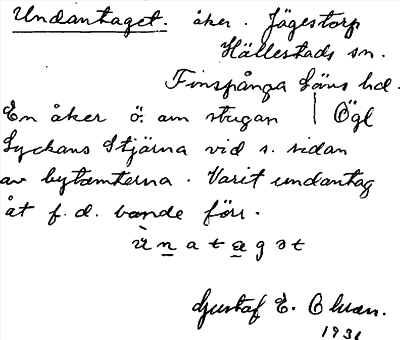 Undantaget. åker. Jägestorp
Hällestads sn.
Finspånga Läns hd.
En åker ö. om stugan | Ögl
Lyckans Stjärna vid s. sidan
av bytomterna. Varit undantag
åt f. d. bonde förr.
ù n a t a g ə t
Gustaf E. Olsson.
1931